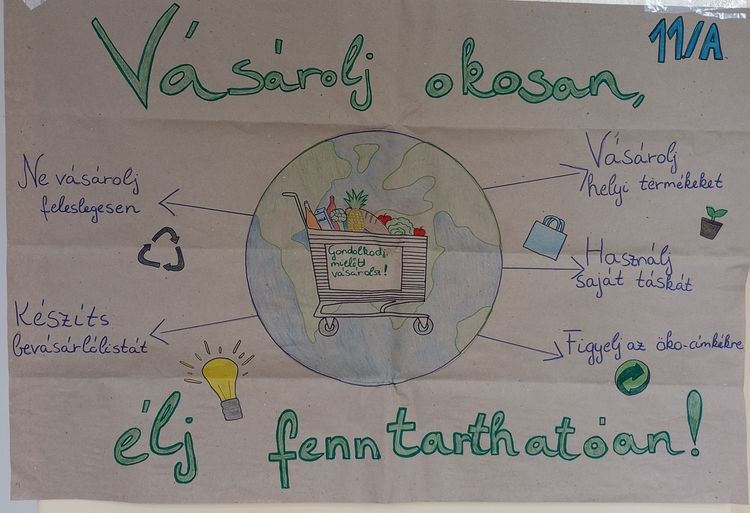 Vásárolj okosan,
11/A
Ne vásárolj
feleslegesen
Készíts
bevásárlólistát
Gondolkodj,
mielőtt
vásárolsz!
Vásárolj
helyi termékeket
Használj
saját táskát
Figyelj az öko-címkékre
élj fenntarthatóan!